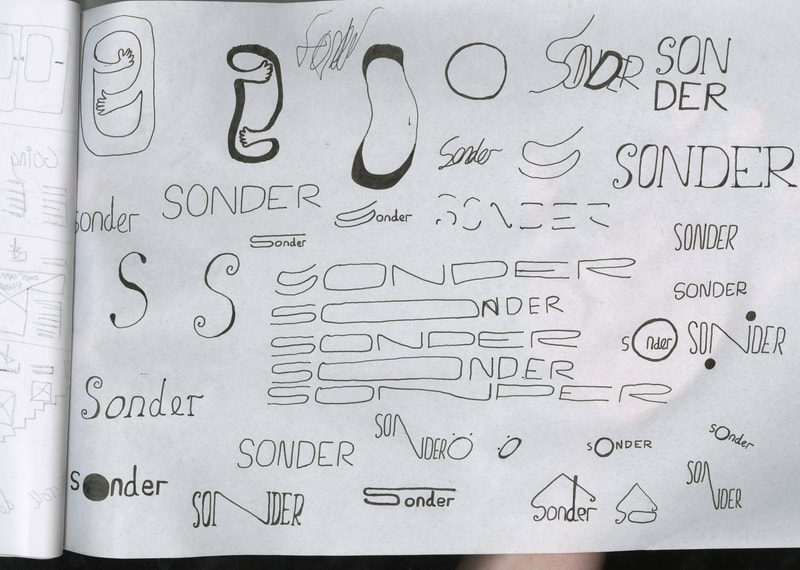 Sonder
SONDER
SON
DER
Sonder
SONDER
sonder
SONDER
Sonder
SONDER
Sonder
SONDER
S
S
SONDER
SONDER
SONDER
SONDER
SONDER
SONDER
sonder
SONDER
Sonder
SONDER
SONDER
SONDER
sonder
sonder
SONDER
Sonder
Sonder
So
SONDER